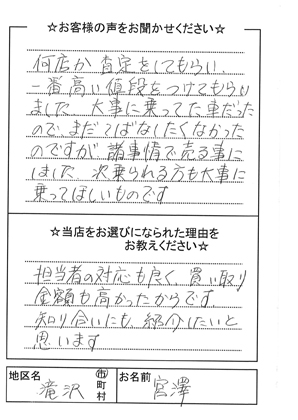 ☆お客様の声をお聞かせください☆
何店か査定をしてもらい
一番高い値段をつけてもらい
ました 大事に乗ってた車だった
ので まだてばなしたくなかった
のですが 諸事情で売る事に
しました 次乗られる方も大事に
乗ってほしいものです
☆当店をお選びになられた理由を
お教えください☆
担当者の対応も良く 買い取り
金額も高かったからです
知り合いにも、紹介したいと
思います
地区名 滝沢 市町村 お名前 宮澤